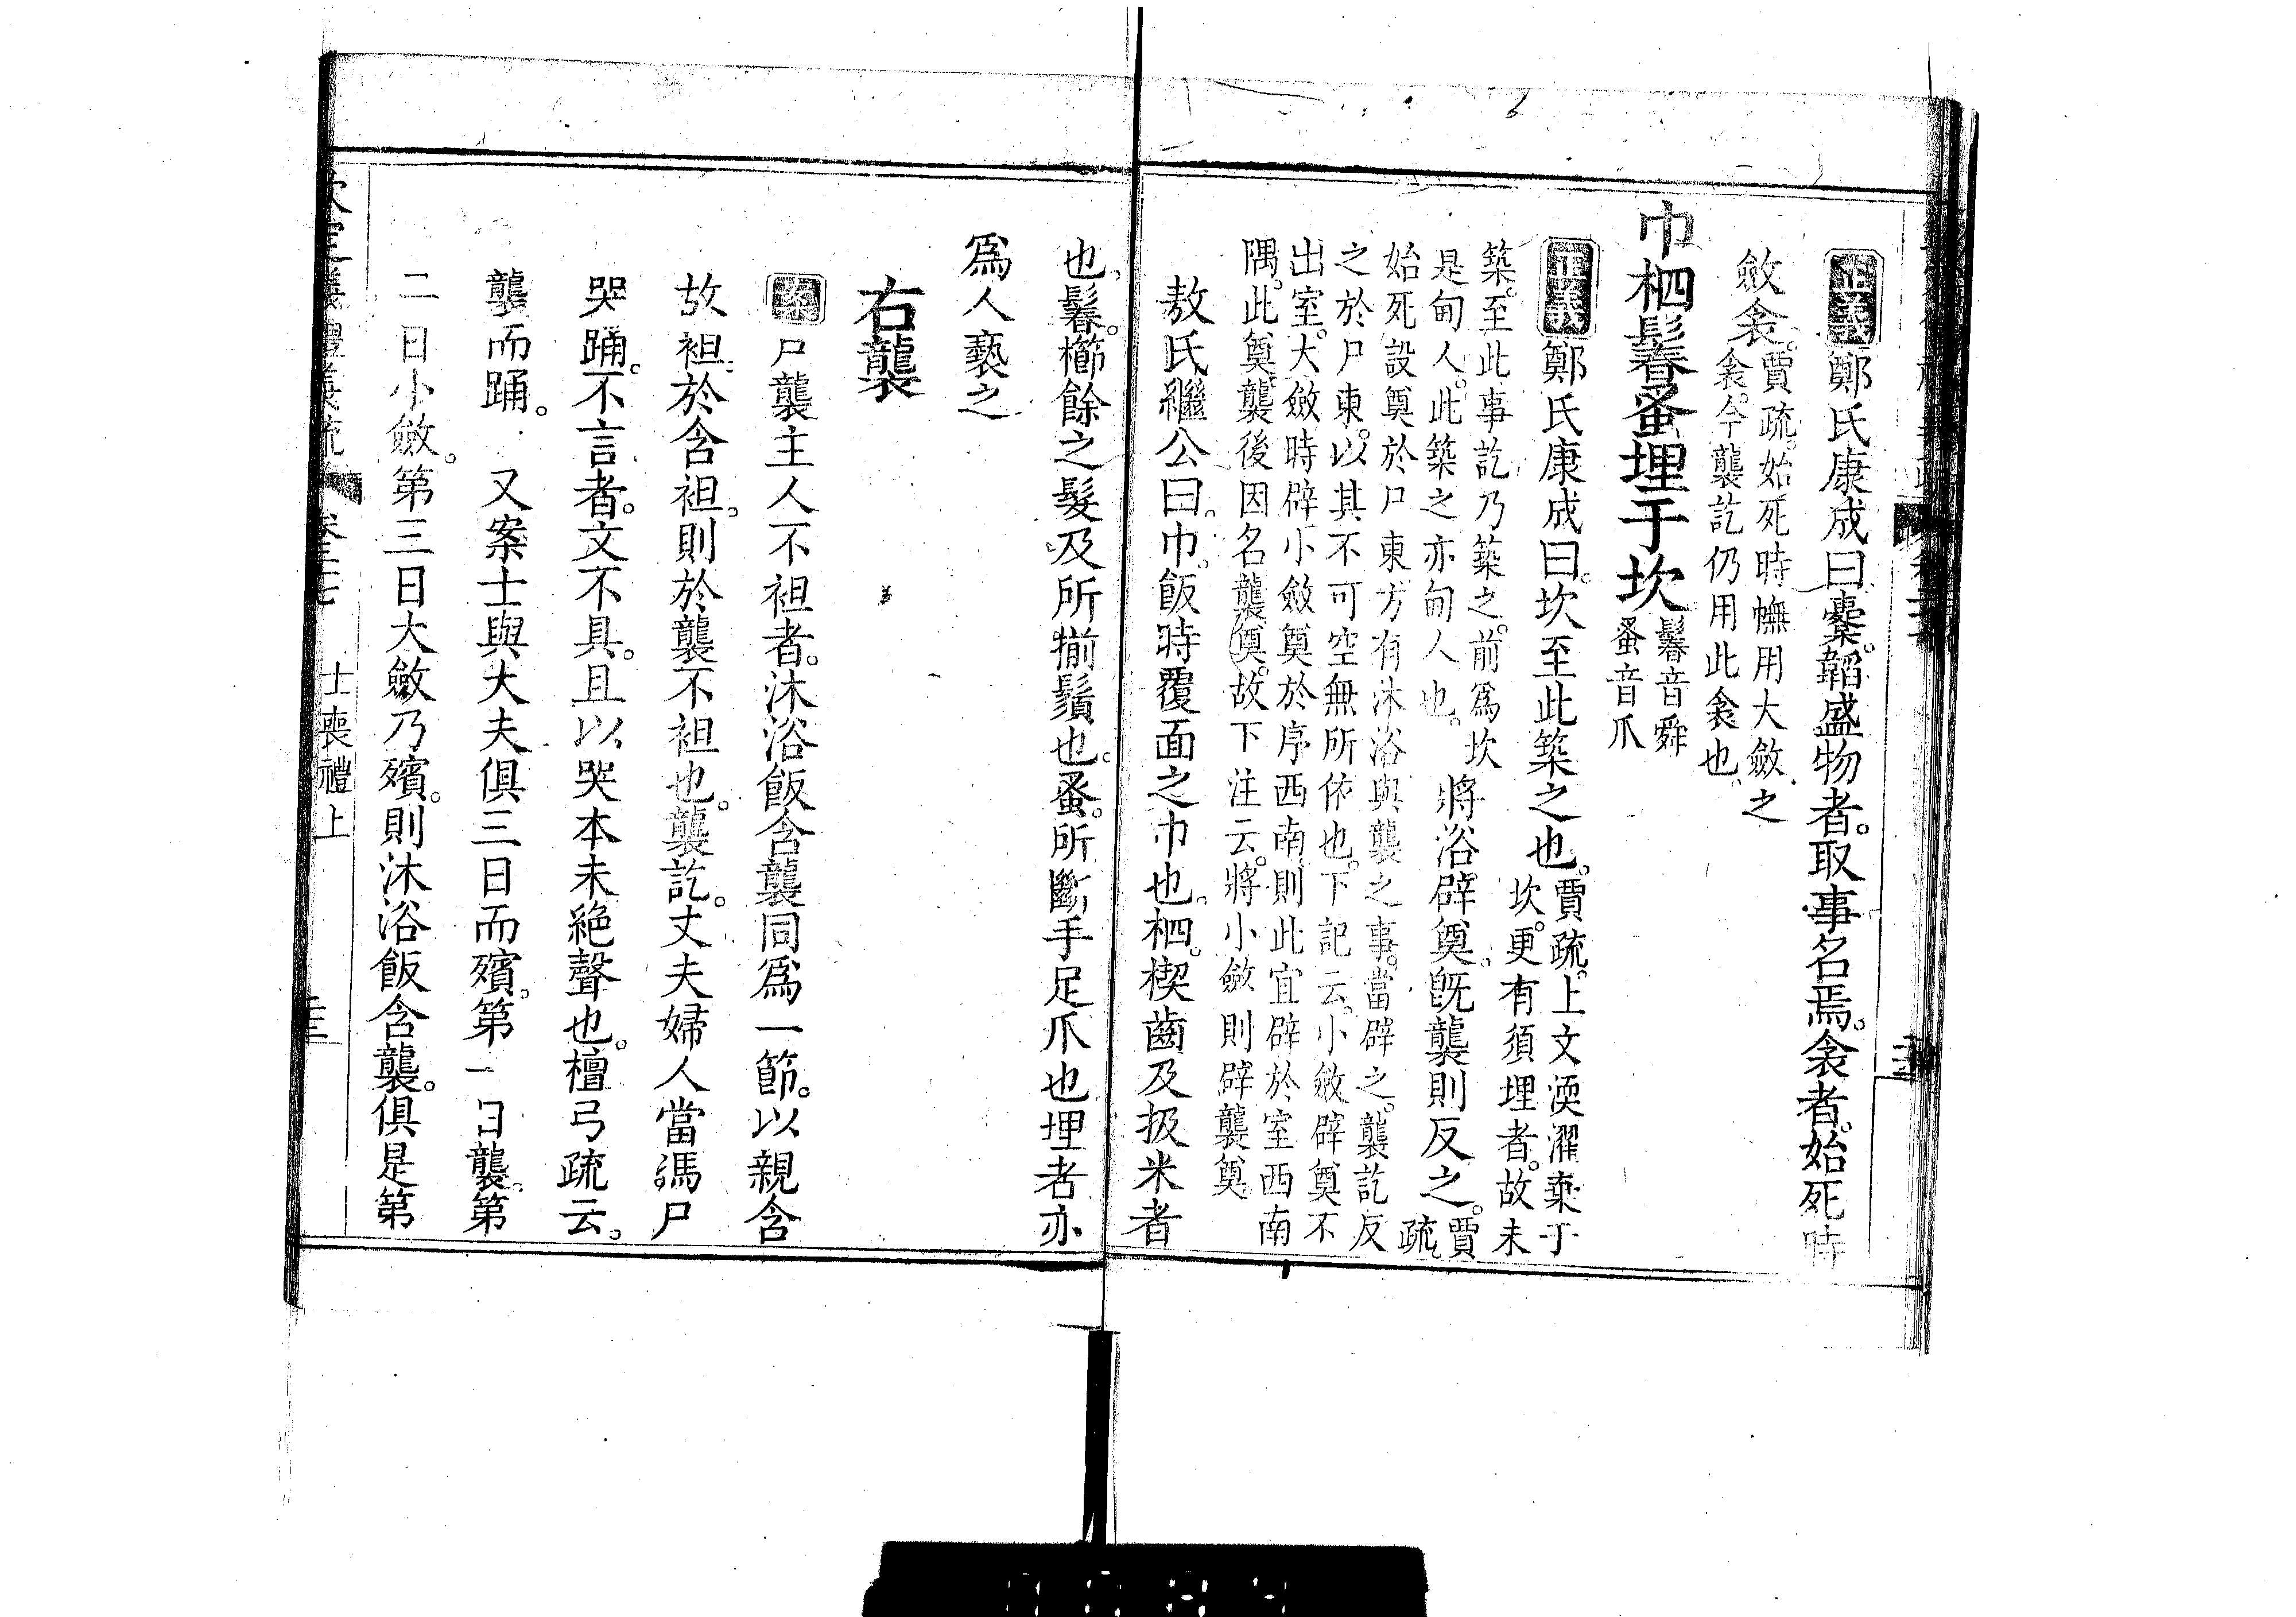 正義鄭氏康成曰櫜韜盛物者取事名焉衾者始死時
斂衾賈疏始死時幠用大斂之
衾今襲訖仍用此衾也
巾柶鬊蚤埋于坎鬊音舜
蚤音爪
正義鄭氏康成曰坎至此築之也賈疏上文渜濯棄于
坎更有須埋者故未
築至此事訖乃築之前爲坎
是甸人此築之亦甸人也
將浴辟奠旣襲則反之賈
疏
始死設奠於尸東方有沐浴與襲之事當辟之襲訖反
之於尸東以其不可空無所依也下記云小斂辟奠不
出室大斂時辟小斂奠於序西南則此宜辟於室西南
隅此奠襲後因名襲奠故下注云將小斂則辟襲奠
敖氏繼公曰巾飯時覆面之巾也柶楔齒及扱米者
也鬊櫛餘之髮及所揃鬚也蚤所斷手足爪也埋者亦
爲人褻之
右襲
案尸襲主人不袒者沐浴飯含襲同爲一節以親含
故袒於含袒則於襲不袒也襲訖丈夫婦人當馮尸
哭踊不言者文不具且以哭本未絶聲也檀弓疏云
襲而踊 又案士與大夫俱三日而殯第一日襲第
二日小斂第三日大斂乃殯則沐浴飯含襲俱是第
欽定儀禮義疏 卷二七 士喪禮上